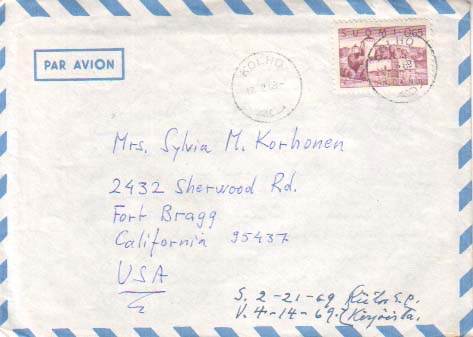 PAR AVION
KOLHO
SUOMI 0,65
LHO
Mrs. Sylvia M. Korhonen
2432 Sherwood Rd.
Fort Bragg
California 95437
USA
S. 2-21-69
V. 4-14-69